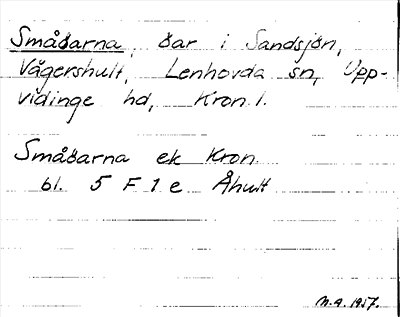 Småöarna, öar i Sandsjön,
Vågershult, Lenhovda sn, Upp-
vidinge hd, Kron. l.
Småöarna ek Kron.
bl. 5 F 1 e Åhult
M.A. 1957.